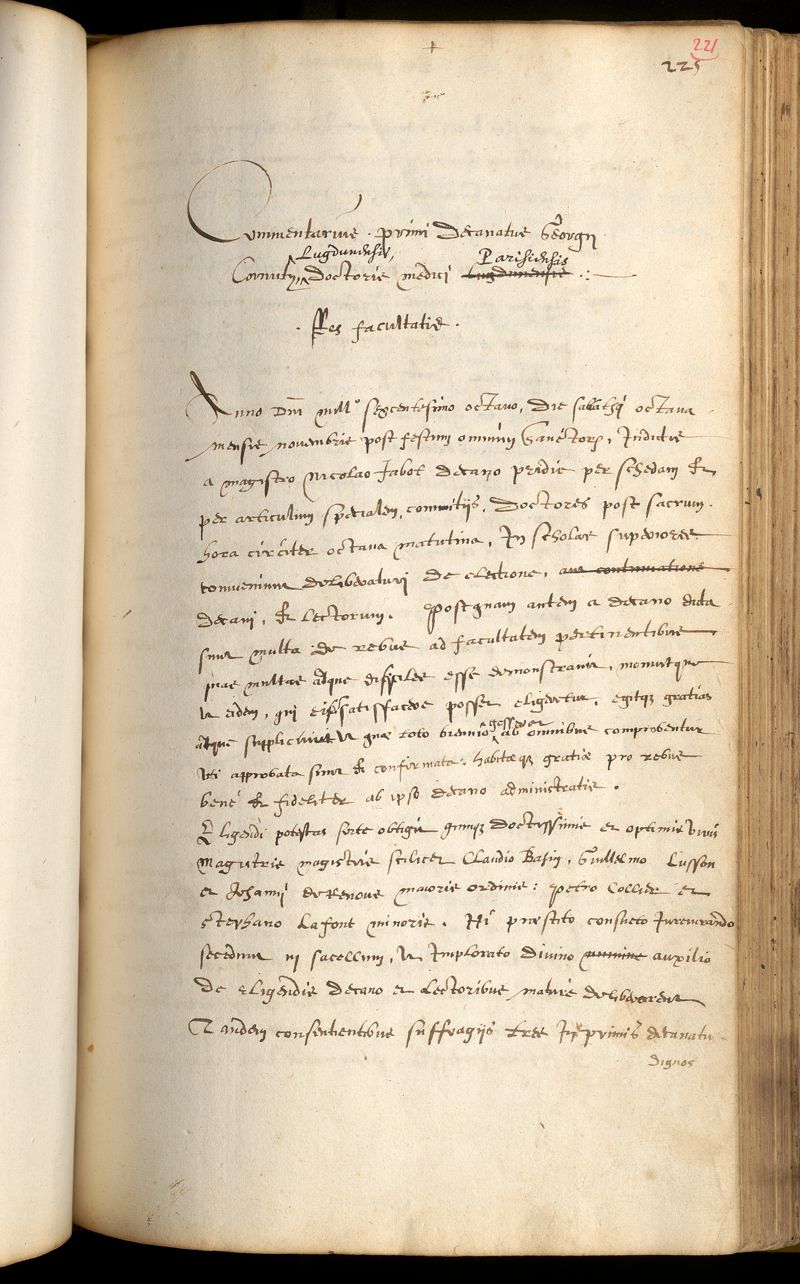 +
221
225
Commentarius primi Decanatus Georgii
Lugdunensis, Parisiensis
Cornuty, Doctoris medici Lugdunensis
Res facultatis.
Anno Dni mill° sexcentesimo octavo, die sabathi octava
mensis novembris post festum omnium Sanctorum, Indictis
a magistro Nicolao Jabot decano pridie per schedam &
per articulum specialem, comitiis, Doctores post sacrum
hora circiter octava matutina, In scholas superiores
convenimus deliberaturi de electione, aut continuatione
decani, & Lectorum. Postquam autem a decano dicta
sunt multa de rebus ad facultatem pertinentibus
quae multas atque difficiles esse demonstravit, monuitque
ut eidem, qui satisfacere posset eligeretur, egitque gratias
gesserat
atque supplicavit ut quae toto biennio ab omnibus comprobentur
uti approbata sunt & confirmata. habitaeque gratiae pro rebus
bene & fideliter ab ipso decano administratis.
Eligendi potestas sorte obtigit quinque doctissimis et optimis viris
Magistris magistris scilicet Claudio Basin, Guillelmo Lusson
et Johanni deRenove maioris ordinis: Petro Collier et
Stephano Lafont minoris. Hi praestito consueto Jureiurando
secedunt in sacellum, ut Implorato divino numine auxilio
de Eligendis decano et Lectoribus mature deliberarent
Tandem consentientibus suffragiis tres In primis decanatu
dignos